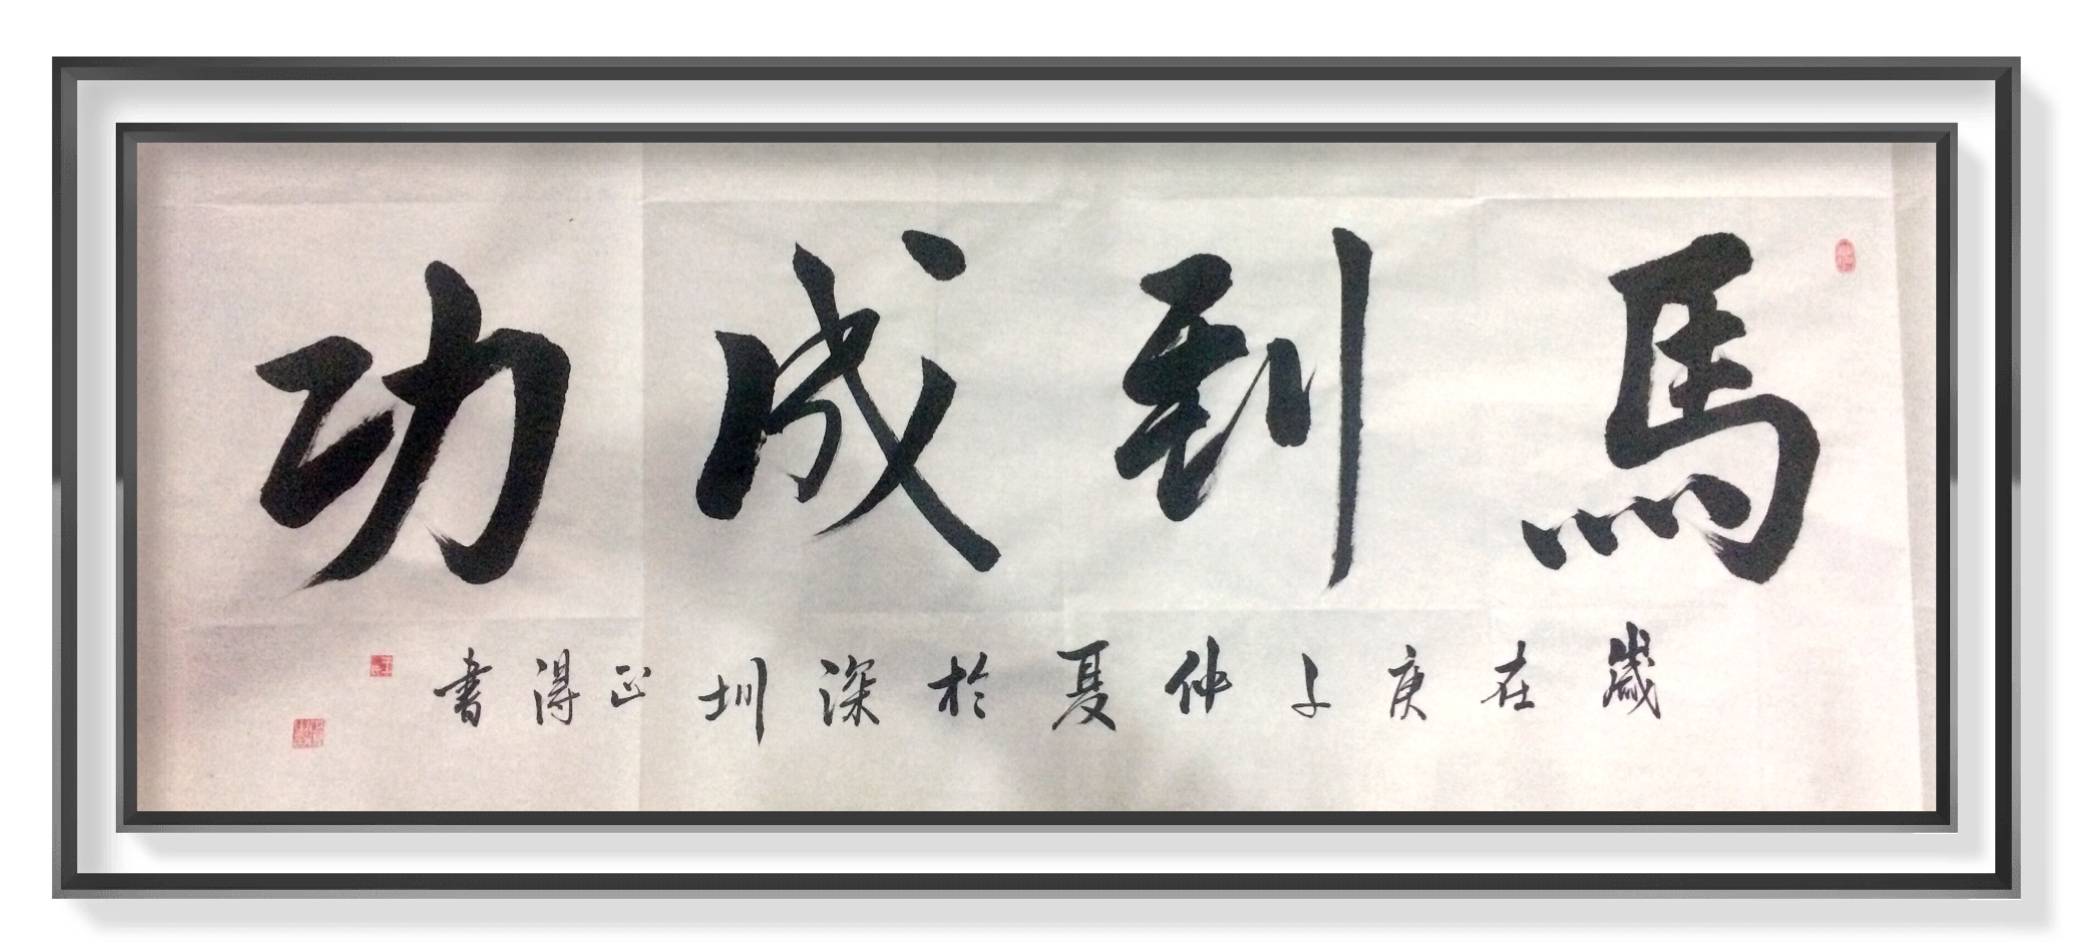 馬到成功
歲在庚子仲夏於深圳正得書